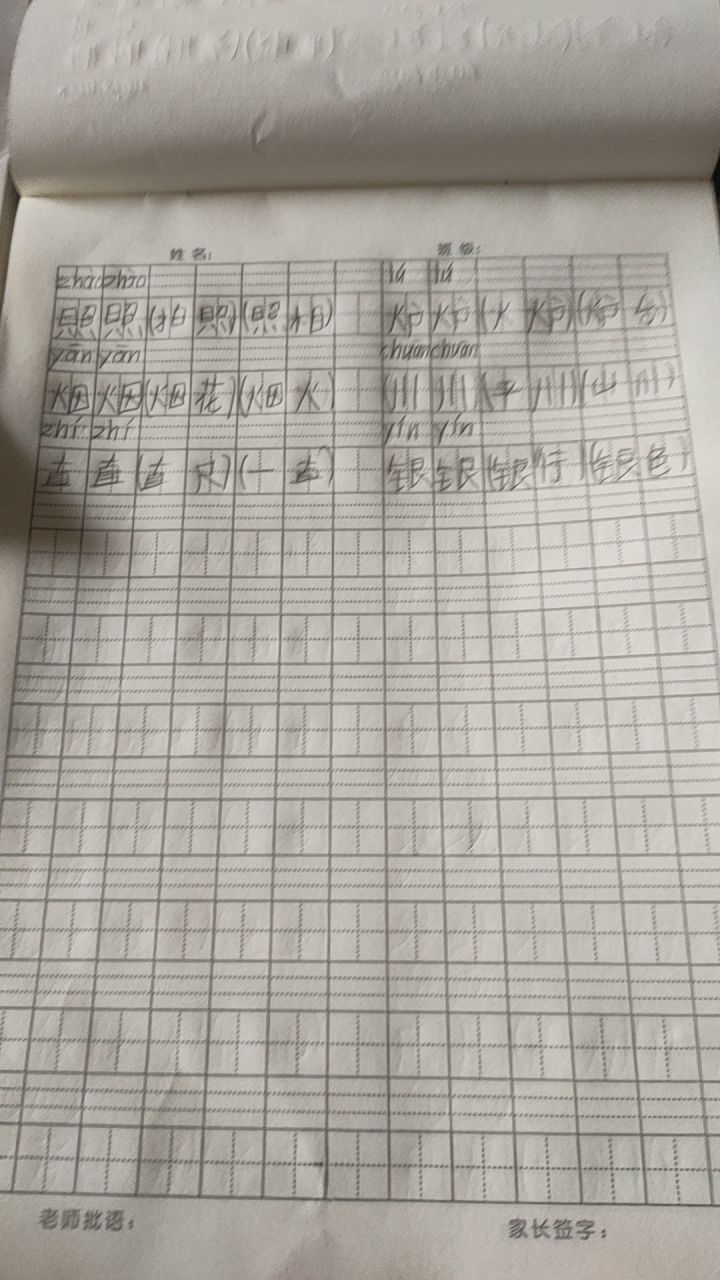 姓名： 班级：
zhào zhào lú lú
照 照 (拍 照) (照 相) 炉 炉 (火 炉) (炉 台)
yān yān chuān chuān
烟 烟 (烟 花) (烟 火) 川 川 (平 川) (山 川)
zhí zhí yín yín
直 直 (直 尺) (一 直) 银 银 (银 行) (银 色)
老师批语： 家长签字：